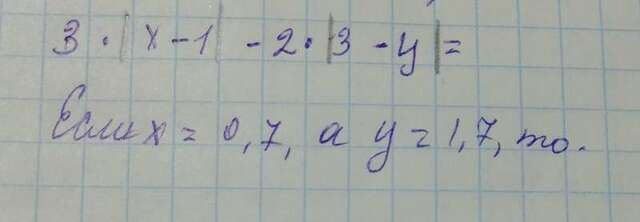 3 · |x - 1| - 2 · |3 - y| =
Если x = 0,7, а y = 1,7, то.